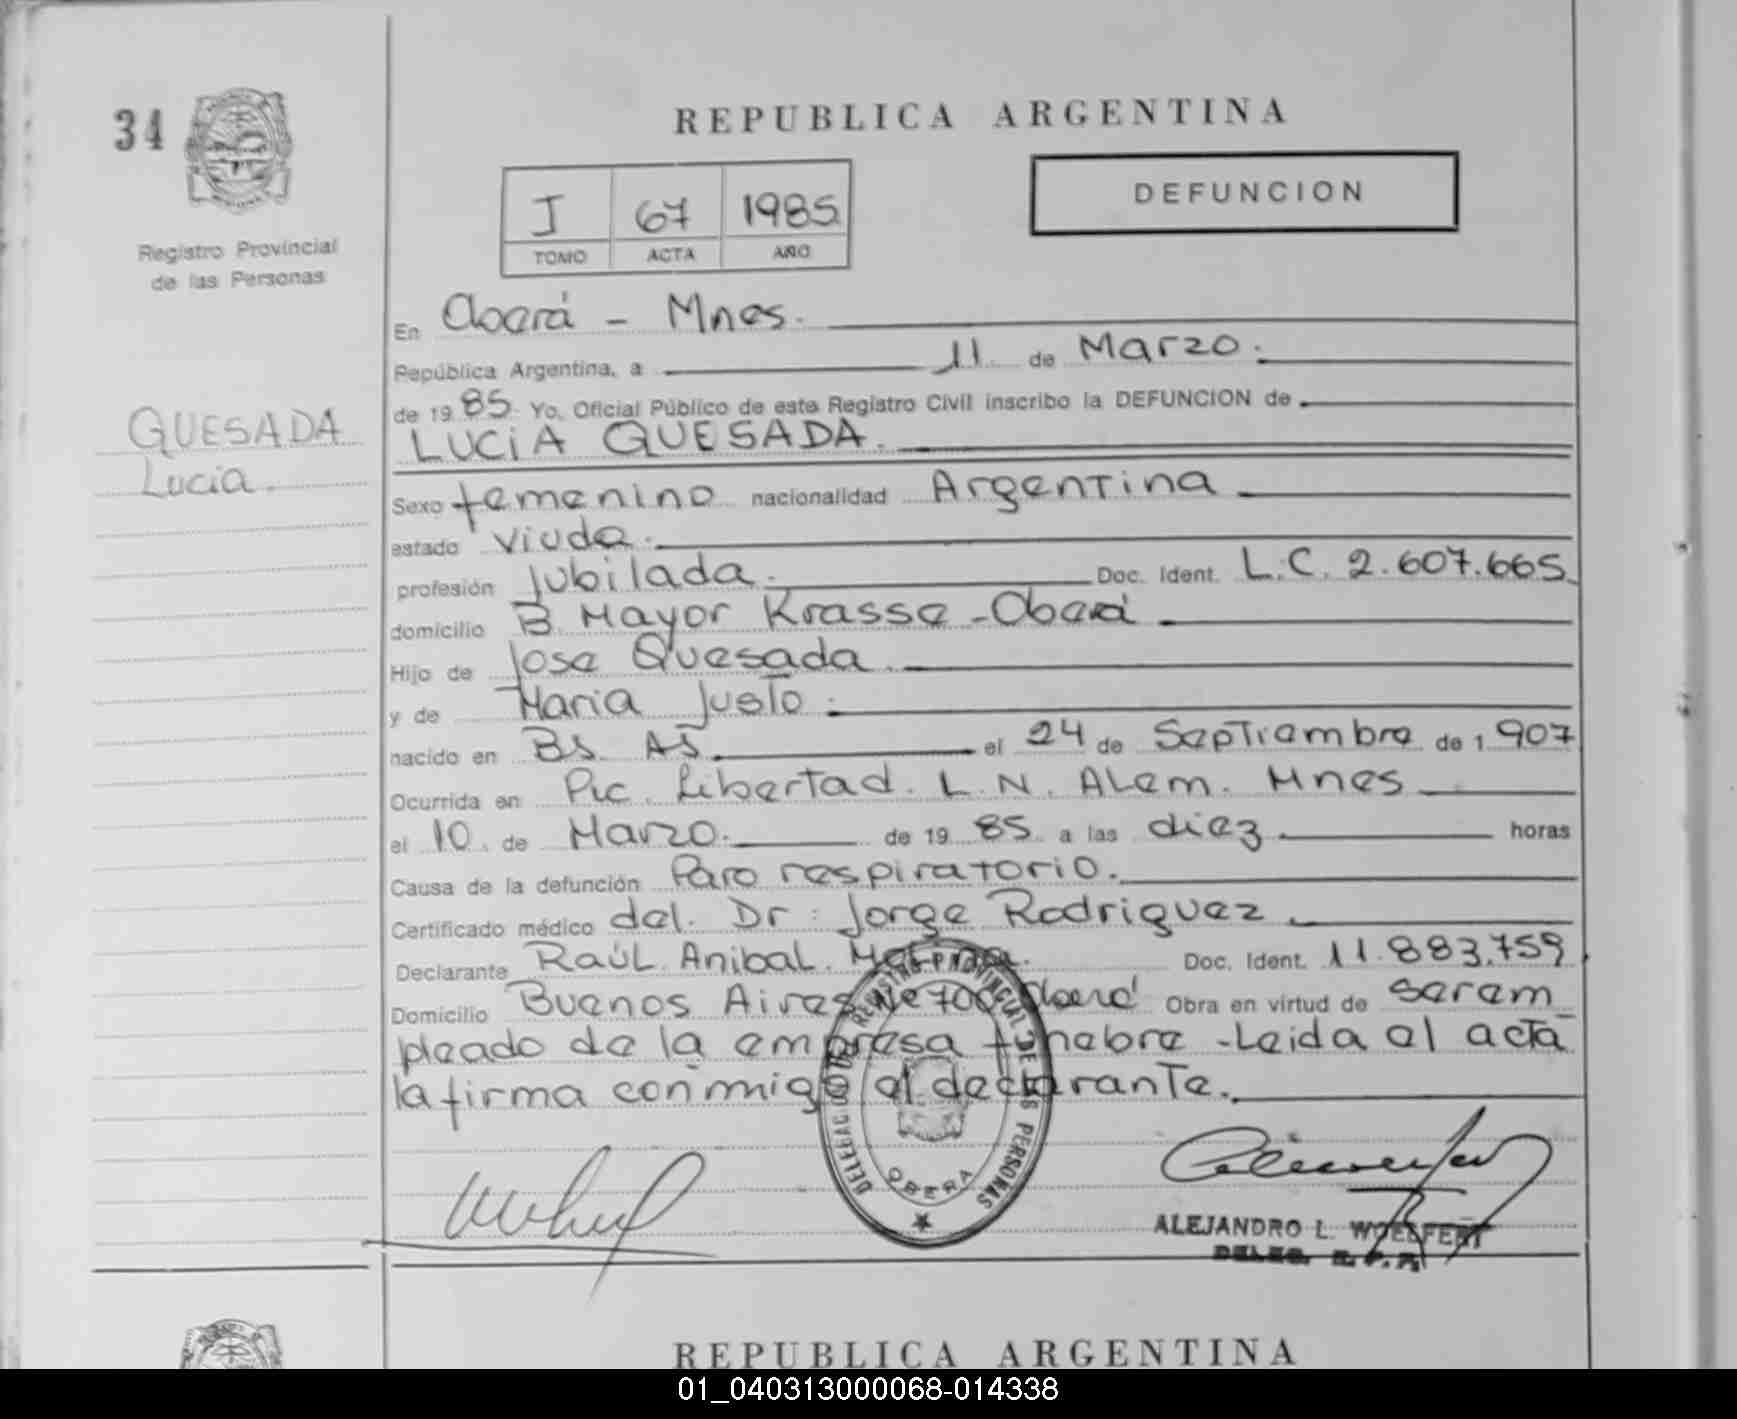 34
REPUBLICA ARGENTINA
I 67 1985
TOMO ACTA AÑO
DEFUNCION
Registro Provincial
de las Personas
QUESADA
Lucia.
En Oberá - Mnes.
República Argentina, a 11 de Marzo.
de 19 85 Yo, Oficial Público de este Registro Civil inscribo la DEFUNCION de
LUCIA QUESADA.
Sexo femenino nacionalidad Argentina
estado viuda.
profesión Jubilada. Doc. Ident. L.C. 2.607.665
domicilio B. Mayor Krasse - Oberá
Hijo de Jose Quesada
y de Maria Justo
nacido en Bs. As. el 24 de Septiembre de 1 907
Ocurrida en Pic. Libertad. L. N. Alem. Mnes
el 10. de Marzo. de 19 85 a las diez horas
Causa de la defunción Paro respiratorio.
Certificado médico del. Dr: Jorge Rodriguez
Declarante Raúl Anibal Doc. Ident. 11.883.759
Domicilio Buenos Aires Ne 700 Oberá Obra en virtud de ser em
pleado de la empresa funebre - Leida el acta
la firma conmigo el declarante.
DELEGACION DEL REGISTRO PROVINCIAL DE LAS PERSONAS
OBERA
ALEJANDRO L. WOELFERT
DELEG. R. P. P.
REPUBLICA ARGENTINA
01_040313000068-014338